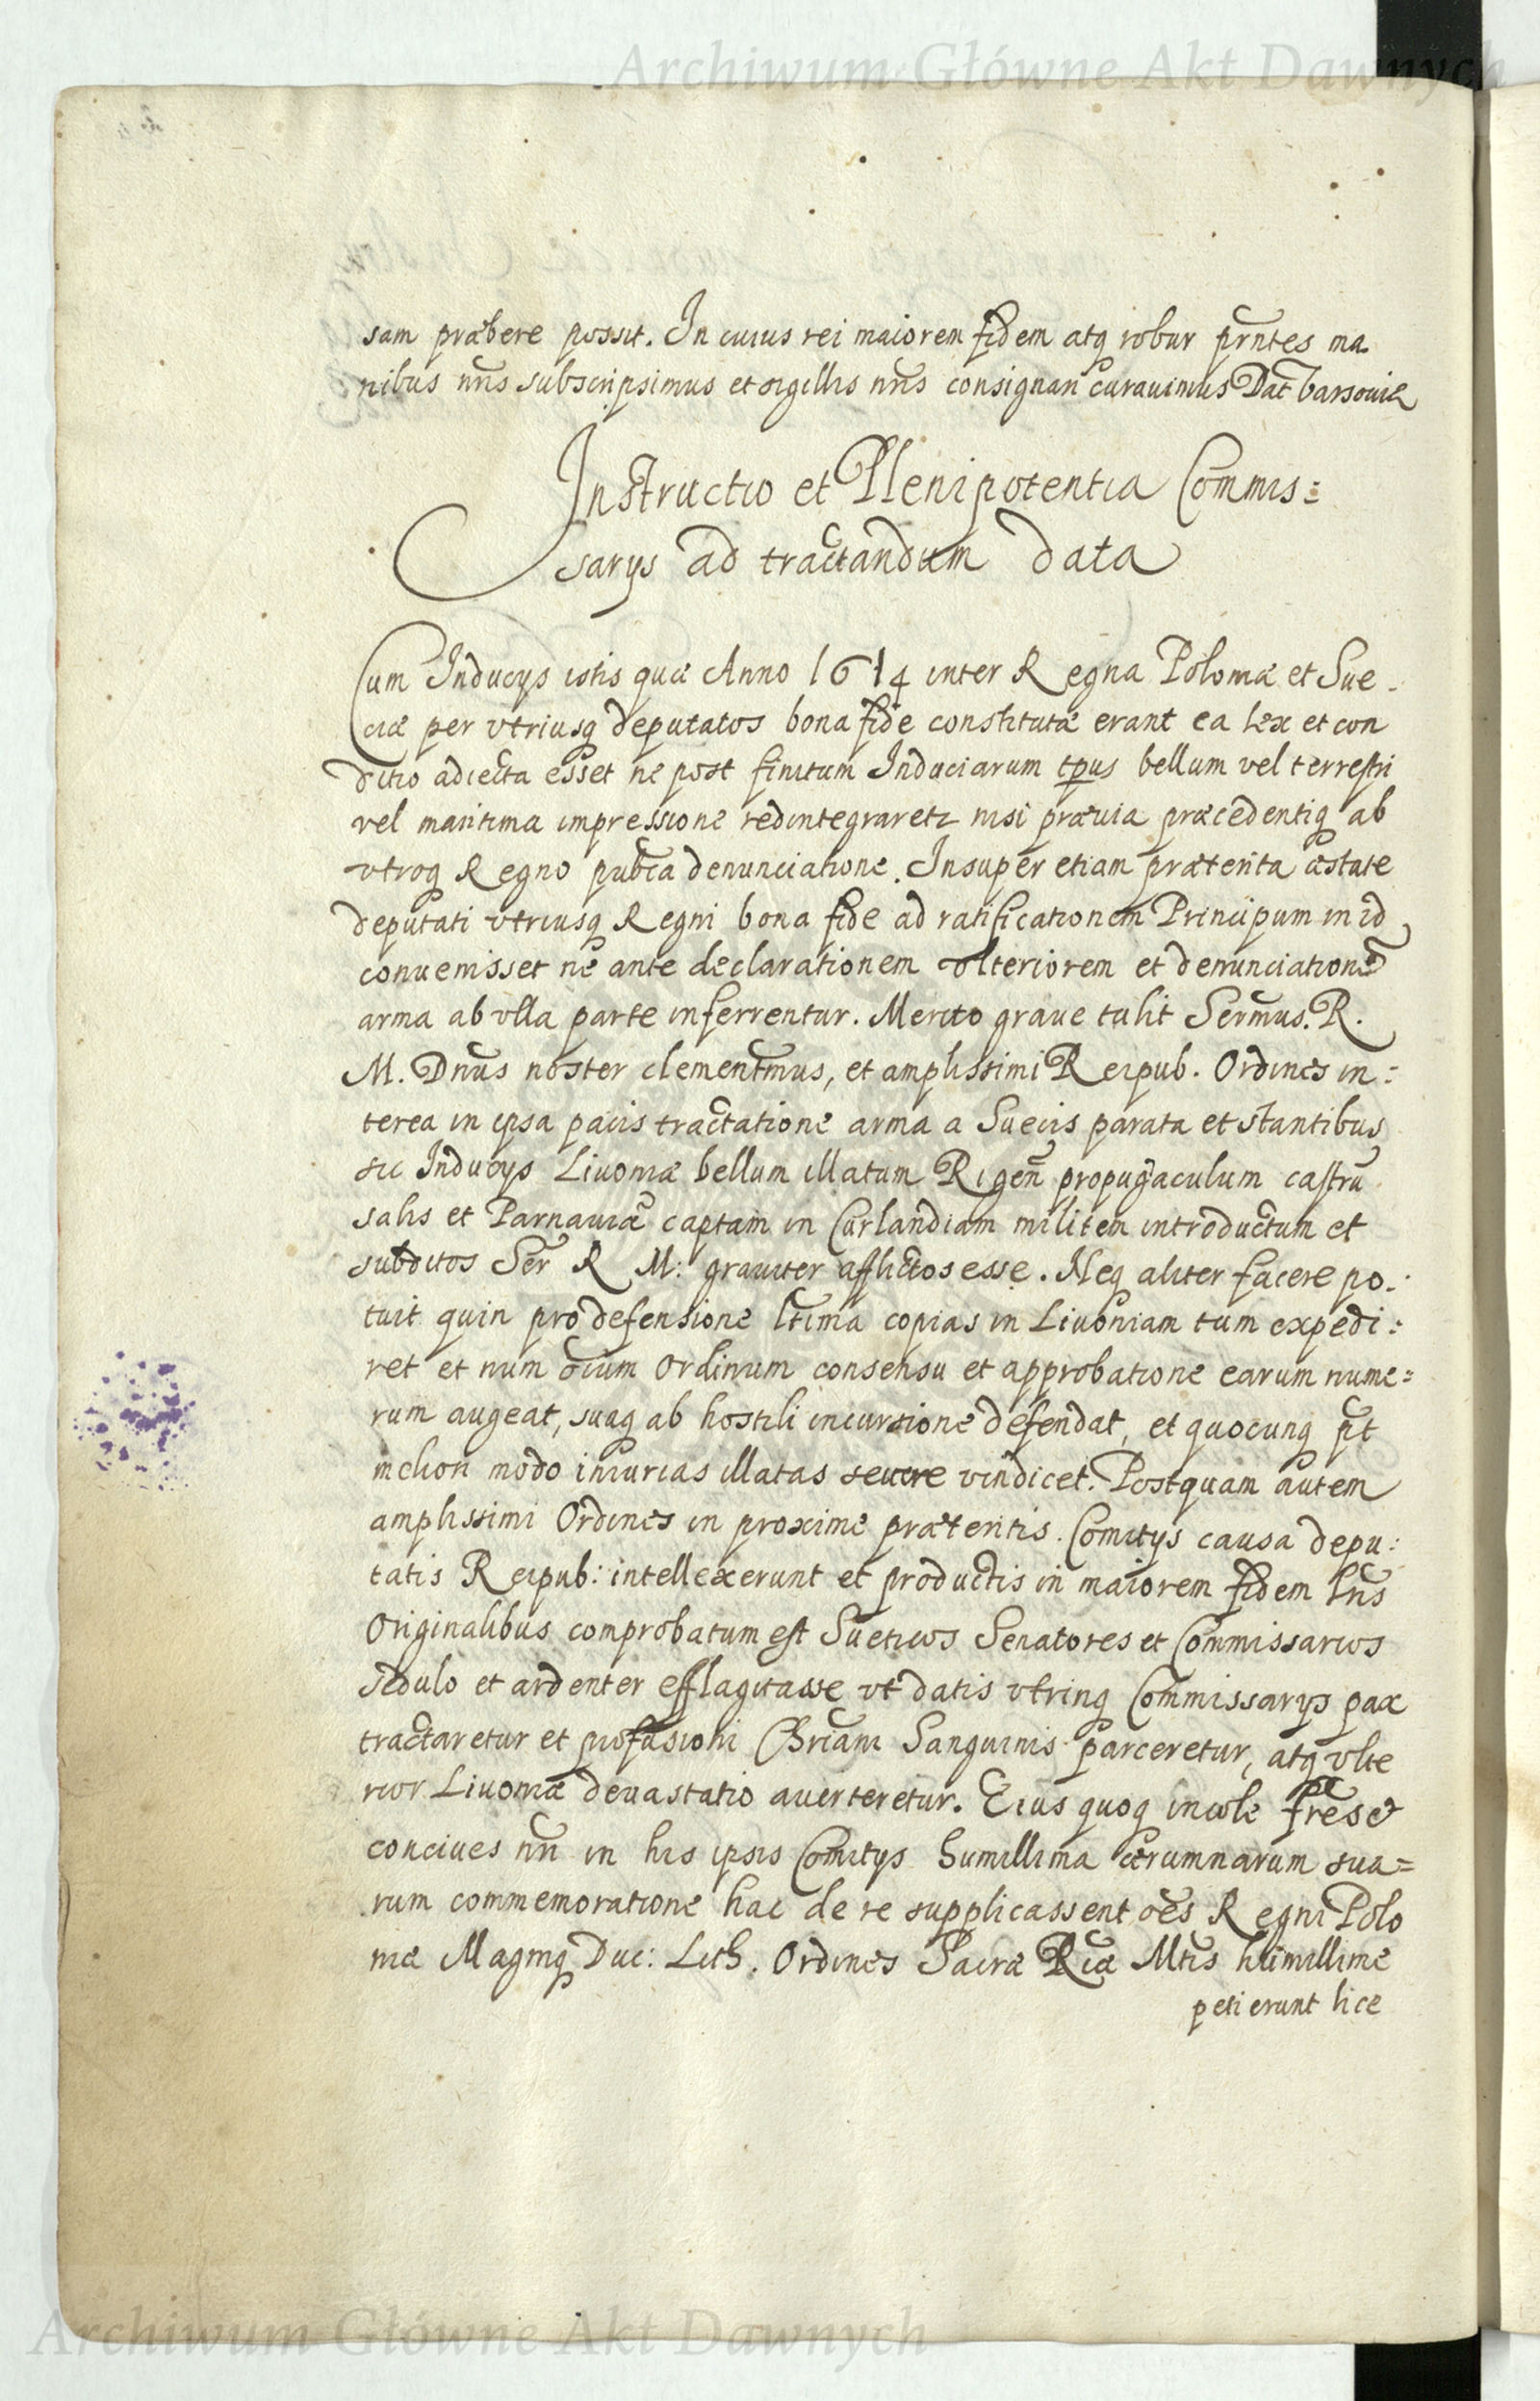 Archiwum Główne Akt Dawnych
sam præbere possit. In cuius rei maiorem fidem atq robur prntes ma
nibus nris subscripsimus et sigillis nris consignari curauimus Dat Varsouiæ
Instructio et Plenipotentia Commis:
sarys ad tractandum data
Cum Inducys istis quæ Anno 1614 inter Regna Poloniæ et Sue-
ciæ per vtriusq deputatos bona fide constitutæ erant ea lex et con
ditio adiecta esset ne post finitum Induciarum tpus bellum vel terrestri
vel maritima impressione redintegraretr nisi præuia præcedentiq ab
vtroq Regno publca denunciatione. Insuper etiam præterita æstate
deputati vtriusq Regni bona fide ad ratificationem Principum in id
conuenisset ne ante declarationem vlteriorem et denunciatione
arma ab vlla parte inferrentur. Merito graue tulit Sermus. R.
M. Dnus noster clementmus, et amplissimi Reipub. Ordines in:
terea in ipsa pacis tractatione arma a Suecis parata et stantibus
sic Inducys Liuoniæ bellum illatum Rigen propugaculum castru
salis et Parnauia captam in Curlandiam militem introductum et
subditos Ser R M: grauiter afflictos esse. Neq aliter facere po:
tuit quin pro defensione ltima copias in Liuoniam tum expedi:
ret et num oium Ordinum consensu et approbatione earum nume=
rum augeat, suaq ab hostili incursione defendat, et quocunq pt
meliori modo iniurias illatas seuere vindicet. Postquam autem
amplissimi Ordines in proxime præteritis Comitys causa depu:
tatis Reipub: intellexerunt et productis in maiorem fidem lris
Originalibus comprobatum est Sueticos Senatores et Commissarios
sedulo et ardenter efflagitasse vt datis vtrinq Commissarys pax
tractaretur et profusioni Chriani Sanguinis parceretur, atq vlte
rior Liuoniæ deuastatio auerteretur. Eius quoq incole fres et
conciues nri in his ipsis Comitys humillima ærumnarum sua=
rum commemoratione hac de re supplicassent oes Regni Polo
niæ Magniq Duc: Lith. Ordines Sacræ Riæ Mtis humillime
petierunt lice
Archiwum Główne Akt Dawnych